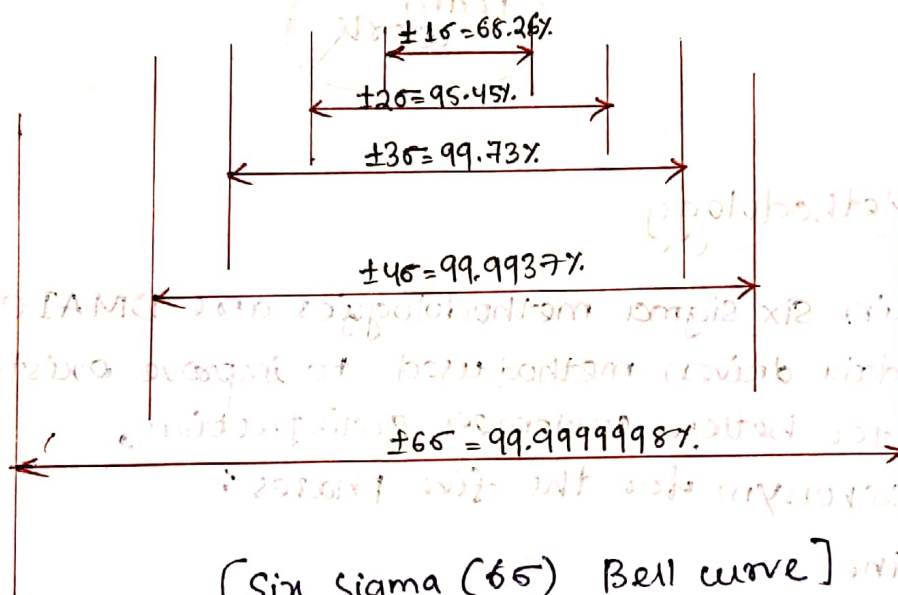 ±1σ=68.26%.
±2σ=95.45%.
±3σ=99.73%.
±4σ=99.9937%.
±6σ=99.9999998%.
[Six sigma (6σ) Bell curve]